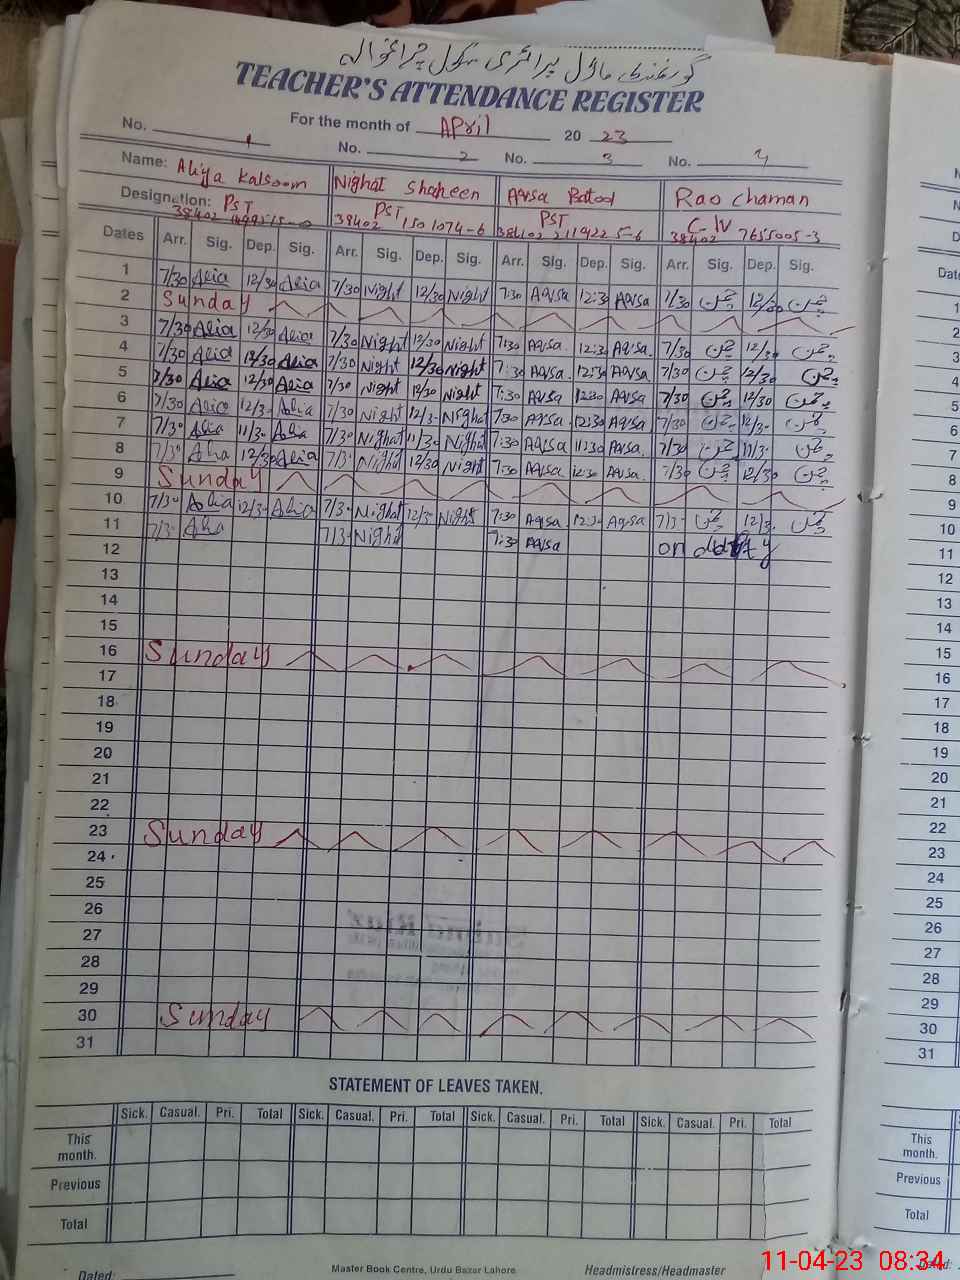 گورنمنٹ ماڈل پرائمری سکول چراغوالہ
TEACHER'S ATTENDANCE REGISTER
For the month of April 2023
No. 1 No. 2 No. 3 No. 4
Name: Aliya Kalsoom Nighat Shaheen Aqsa Batool Rao chaman
Designation: PST PST PST C-IV
38402 1501074-6 38402 2119225-6 38402 7655005-3
Dates Arr. Sig. Dep. Sig. Arr. Sig. Dep. Sig. Arr. Sig. Dep. Sig. Arr. Sig. Dep. Sig.
1 7/30 Alia 12/30 Alia 7/30 Night 12/30 Night 7:30 Aqsa 12:30 Aqsa 7/30 چمن 12/30 چمن
2 Sunday
3 7/30 Alia 12/30 Alia 7/30 Night 12/30 Night 7:30 Aqsa. 12:30 Aqsa. 7/30 چمن 12/30 چمن
4 7/30 Alia 12/30 Alia 7/30 Night 12/30 Night 7:30 Aqsa. 12:30 Aqsa 7/30 چمن 12/30 چمن
5 7/30 Alia 12/30 Alia 7/30 Night 12/30 Night 7:30 Aqsa 12:30 Aqsa 7/30 چمن 12/30 چمن
6 7/30 Alia 12/3- Alia 7/30 Night 12/3- Night 7:30 Aqsa 12:30 Aqsa 7/30 چمن 12/3- چمن
7 7/30 Alia 11/3- Alia 7/30 Nighat 11/30 Night 7:30 Aqsa 11:30 Aqsa. 7/30 چمن 11/3- چمن
8 7/3- Alia 12/30 Alia 7/3- Night 12/30 Night 7:30 Aqsa 12:30 Aqsa. 7/30 چمن 12/30 چمن
9 Sunday
10 7/3- Alia 12/3- Alia 7/3- Nighat 12/3- Night 7:30 Aqsa 12:30 Aqsa 7/3- چمن 12/3- چمن
11 7/3- Alia 7/3- Night 7:30 Aqsa on duty
12
13
14
15
16 Sunday
17
18
19
20
21
22
23 Sunday
24
25
26
27
28
29
30 Sunday
31
STATEMENT OF LEAVES TAKEN.
Sick. Casual. Pri. Total Sick. Casual. Pri. Total Sick. Casual. Pri. Total Sick. Casual. Pri. Total
This month.
Previous
Total
Dated: Master Book Centre, Urdu Bazar Lahore. Headmistress/Headmaster
Date
1
2
3
4
5
6
7
8
9
10
11
12
13
14
15
16
17
18
19
20
21
22
23
24
25
26
27
28
29
30
31
This month.
Previous
Total
Dated:
11-04-23 08:34